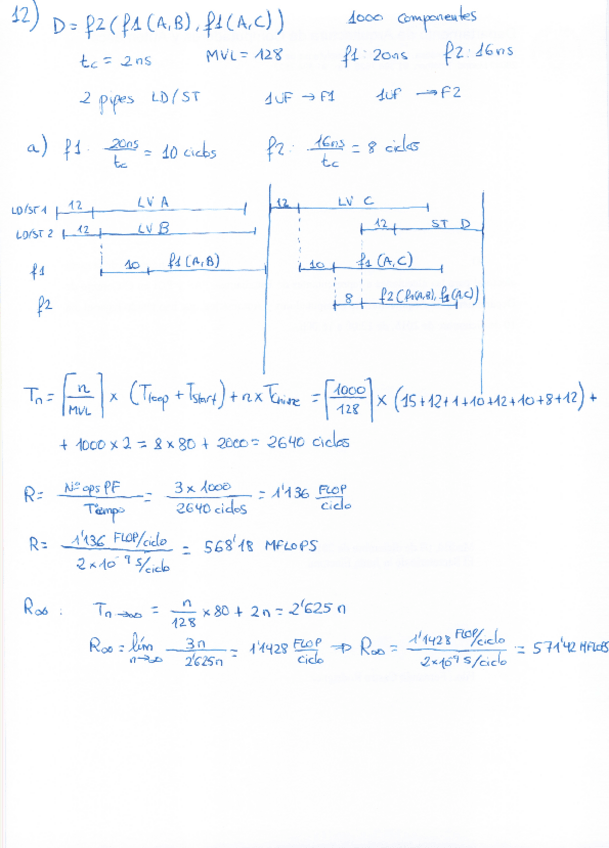 12) D = f2(f1(A,B), f1(A,C)) 1000 componentes
tc = 2ns MVL = 128 f1: 20ns f2: 16ns
2 pipes LD/ST 1UF → F1 1UF → F2
a) f1: 20ns/tc = 10 ciclos f2: 16ns/tc = 8 ciclos
LD/ST 1 12 LV A 12 LV C
LD/ST 2 12 LV B 12 ST D
f1 10 f1(A,B) 10 f1(A,C)
f2 8 f2(f1(A,B), f1(A,C))
Tn = ⌈n/MVL⌉ × (Tloop + Tstart) + n × Tchime = ⌈1000/128⌉ × (15+12+1+10+12+10+8+12) +
+ 1000 × 2 = 8 × 80 + 2000 = 2640 ciclos
R = Nº ops PF/Tiempo = 3 × 1000/2640 ciclos = 1'136 FLOP/ciclo
R = 1'136 FLOP/ciclo/2×10⁻⁹ s/ciclo = 568'18 MFLOPS
R∞: Tn→∞ = n/128 × 80 + 2n = 2'625 n
R∞ = lím n→∞ 3n/2'625n = 1'1428 FLOP/ciclo ⇒ R∞ = 1'1428 FLOP/ciclo/2×10⁻⁹ s/ciclo = 571'42 MFLOPS